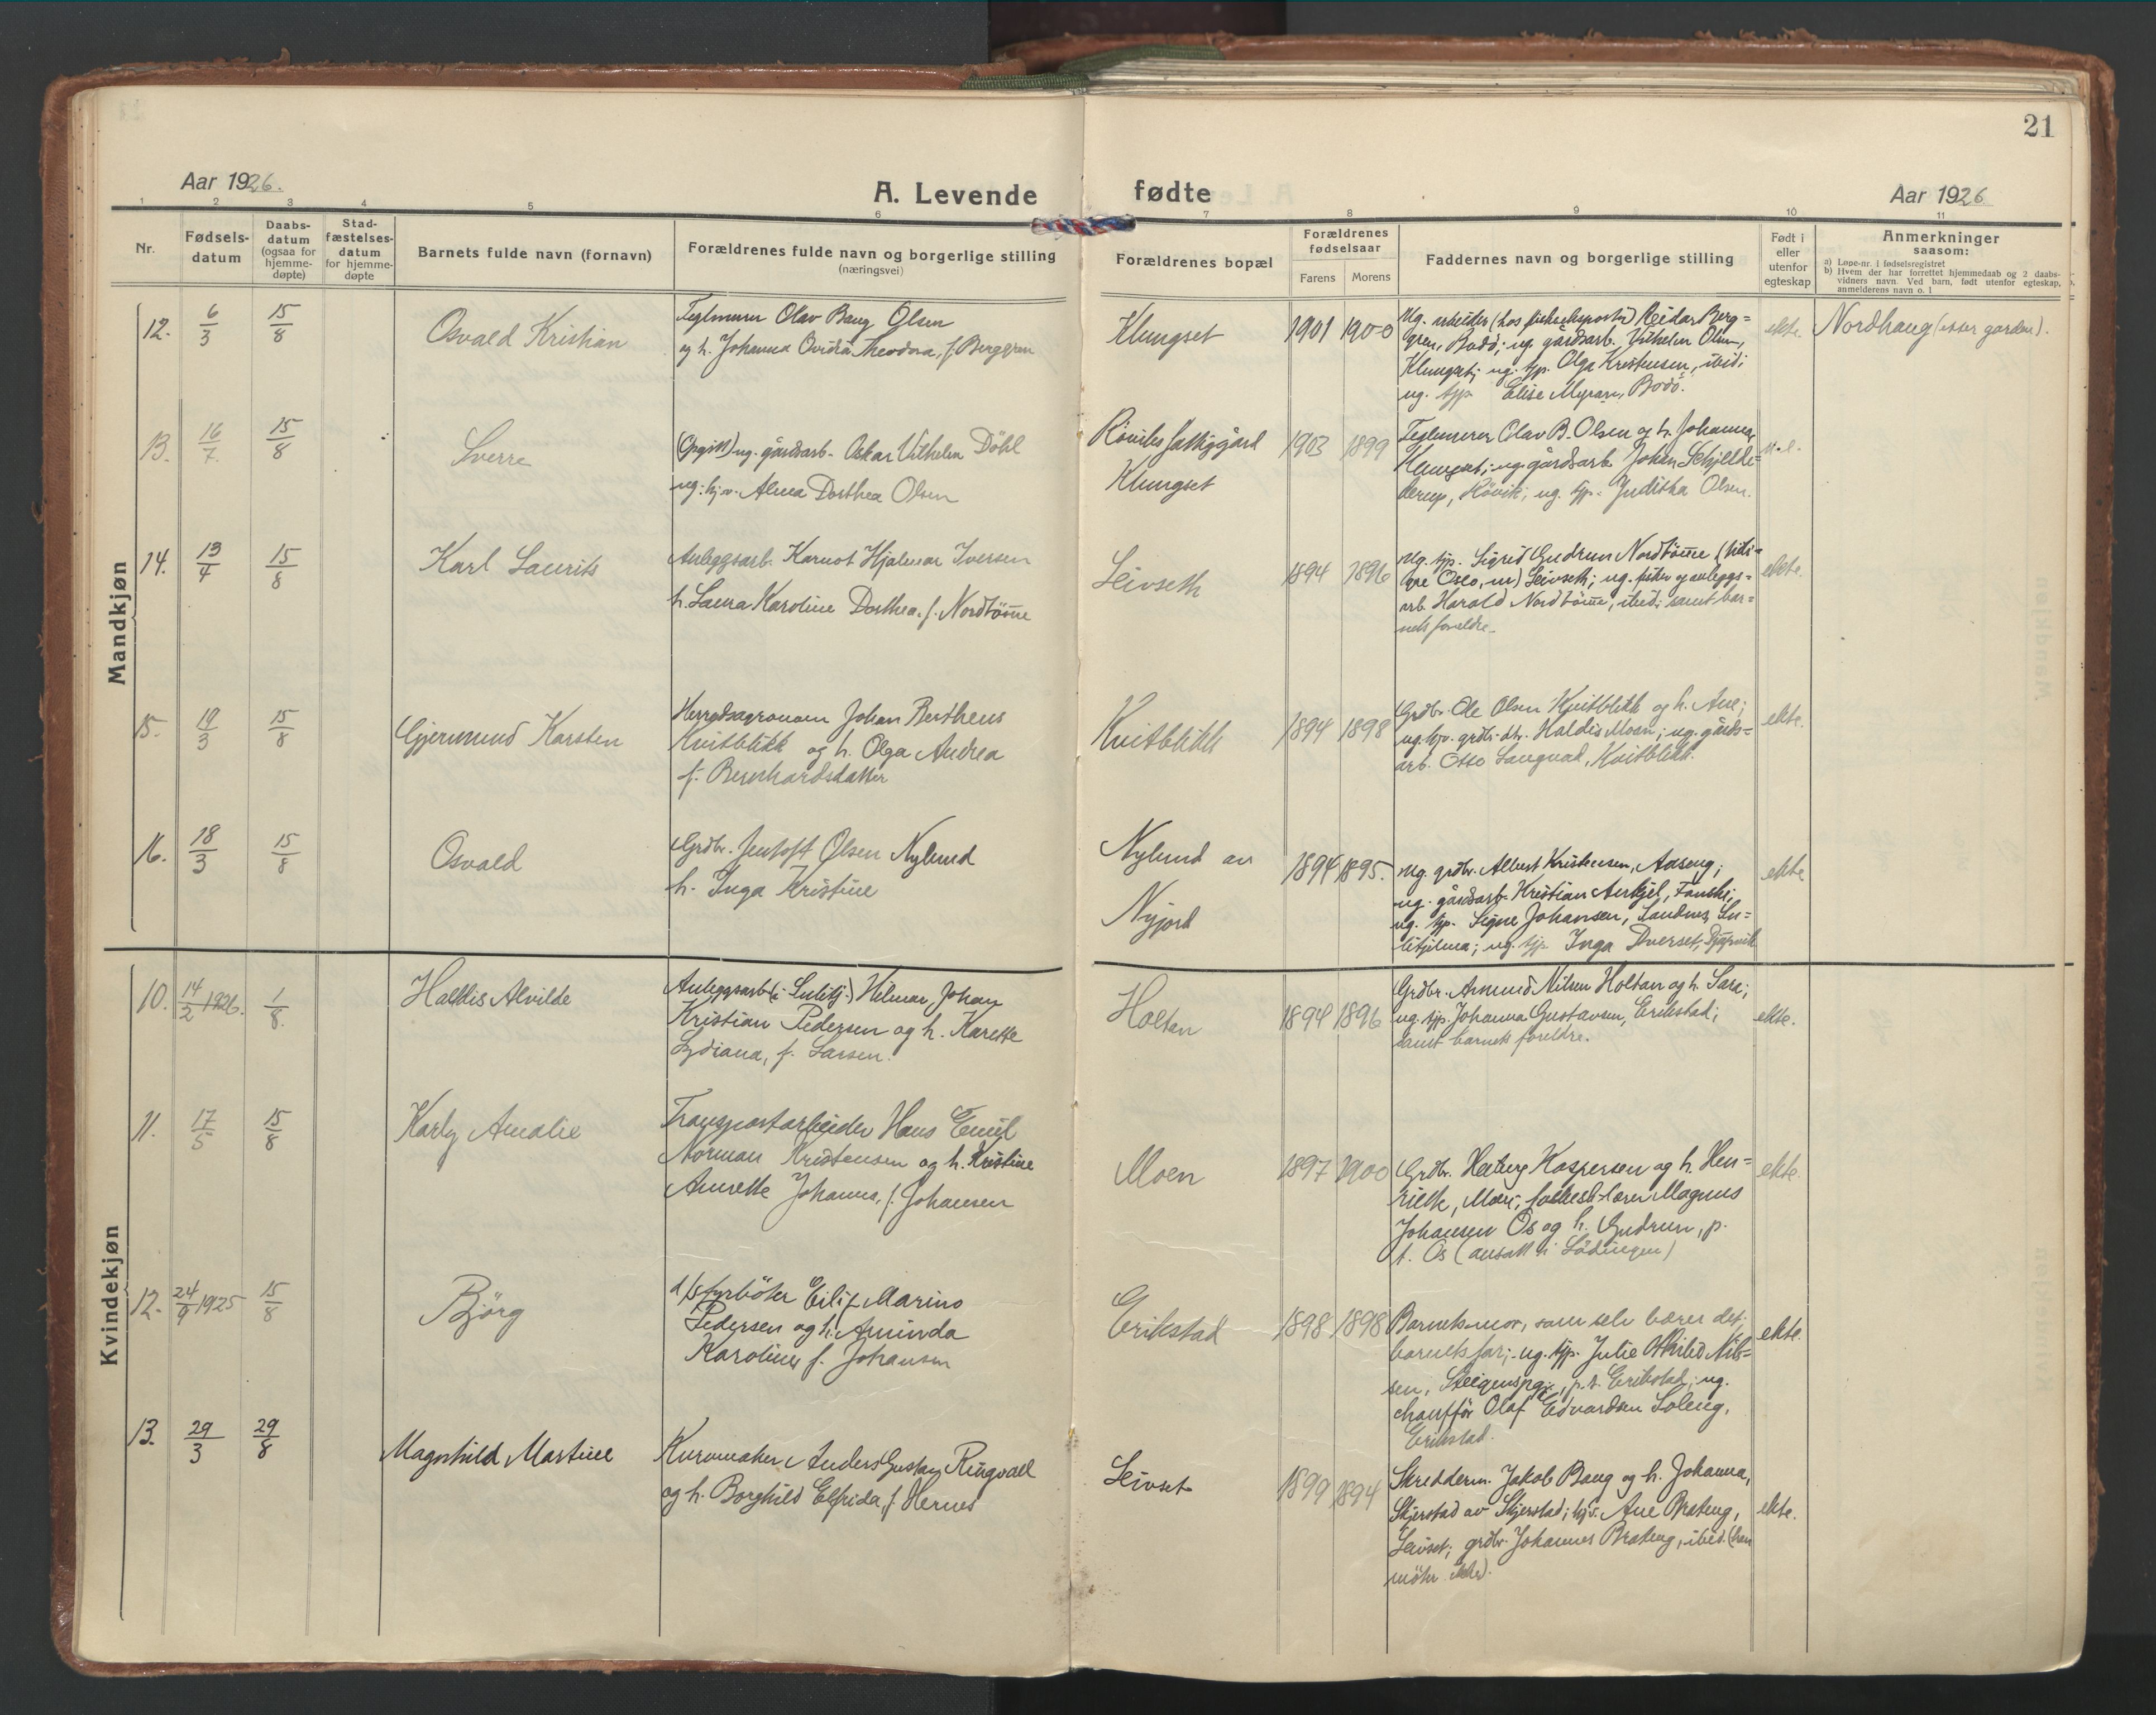 21
Aar 1926.
A. Levende fødte
Aar 1926
1 2 3 4 5 6 7 8 9 10 11
Nr.
Fødsels-
datum
Daabs-
datum
(ogsaa for
hjemme-
døpte)
Stad-
fæstelses-
datum
for hjemme-
døpte
Barnets fulde navn (fornavn)
Forældrenes fulde navn og borgerlige stilling
(næringsvei)
Forældrenes bopæl
Forældrenes
fødselsaar
Farens Morens
Faddernes navn og borgerlige stilling
Født i
eller
utenfor
egteskap
Anmerkninger
saasom:
a) Løpe-nr. i fødselsregistret
b) Hvem der har forrettet hjemmedaab og 2 daabs-
vidners navn. Ved barn, født utenfor egteskap,
anmelderens navn o. l
Mandkjøn
12. 6/3 15/8 Osvald Kristian
Teglmurer Olav Baug Olsen
og h. Johanna Ovidia Theodora, f. Berggren
Klungset 1901 1900
Ug. arbeider (hos fiskeeksportør) Reidar Berg=
gren, Bodö; ug. gårdsarb. Vilhelm Olsen,
Klungset; ug. tjp. Olga Kristensen, ibid;
ug. tjp. Elise Myran, Bodö.
ekte.
Nordhaug (etter garden).
13. 16/7. 15/8 Sverre
(Opgitt) ug. gårdsarb. Oskar Vilhelm Döhl
ug. hjv. Alma Dorthea Olsen
Röviks fattiggård
Klungset
1903 1899
Teglmurer Olav B. Olsen og h. Johanna,
Klungset; ug. gårdsarb. Johan Schjelde=
derup, Rövik; ug. tjp. Juditha Olsen.
u. e.
14. 13/4 15/8 Karl Laurits
Anleggsarb. Karnot Hjalmar Iversen
h. Laura Karoline Dorthea, f. Nordtömme
Leivseth 1894 1896
Ug. tjp. Sigrid Gudrun Nordtömme (tidli=
gere Oslo, nu) Leivseth; ug. fisker og anleggs=
arb. Harald Nordtömme, ibid; samt bar=
nets foreldre.
ekte.
15. 19/3 15/8 Gjermund Karsten
Herredsagronom Johan Berthens
Kvitblikk og h. Olga Andrea
f. Bernhardsdatter
Kvitblikk 1894 1898
Grdbr. Ole Olsen Kvitblikk og h. Ane;
ug. hjv. grdb. dtr. Haldis Moen; ug. gårds=
arb. Otto Langvad, Kvitblikk.
ekte.
16. 18/3 15/8 Osvald
Grdbr. Jentoft Olsen Nylund
h. Inga Kristine
Nylund av
Nyjord
1894 1895.
Ug. grdbr. Albert Kristensen, Aaseng;
ug. gårdsarb. Kristian Ankjel, Fauske;
ug. tjp. Signe Johansen, Sandnes, Su=
litjelma; ug. tjp. Inga Dverset, Djupvik
ekte
Kvindekjøn
10. 14/2 1926. 1/8. Halldis Alvilde
Anleggsarb. (i Sulitj.) Hilmar Johan
Kristian Pedersen og h. Karette
Lydiana, f. Larsen.
Holtan 1894 1896
Grdbr. Amund Nilsen Holtan og h. Sara;
ug. tjp. Johanna Gustavsen, Erikstad;
samt barnets foreldre.
ekte.
11. 17/5 15/8 Karly Amalie
Transportarbeider Hans Emil
Norman Kristensen og h. Kristine
Annette Johanna, f. Johansen
Moen 1897 1900
Grdbr. Hertung Kaspersen og h. Hen=
rikke, Moen; folkesk.lærer Magnus
Johansen Os og h. Gudrun, p.
t. Os (ansatt i Lödingen)
ekte.
12. 24/9 1925 15/8 Björg
d/s fyrböter Eilif Marino
Pedersen og h. Aminda
Karoline f. Johansen
Erikstad 1898 1898
Barnets mor, som selv bærer det;
barnets far; ug. tjp. Julie Othilid Nil=
sen, Steigenspgj., p. t. Erikstad; ug.
chaufför Olaf Edvardsen Soleng,
Erikstad.
ekte.
13. 29/3 29/8 Magnhild Martine
Kurvmaker Anders Gustav Ringvall
og h. Borghild Elfrida, f. Hernes
Leivset 1899 1894
Skredderm. Jakob Baug og h. Johanna,
Skjerstad av Skjerstad; hjv. Ane Brateng,
Leivset; grdbr. Johannes Brateng, ibid. (han
möter ikke).
ekte.